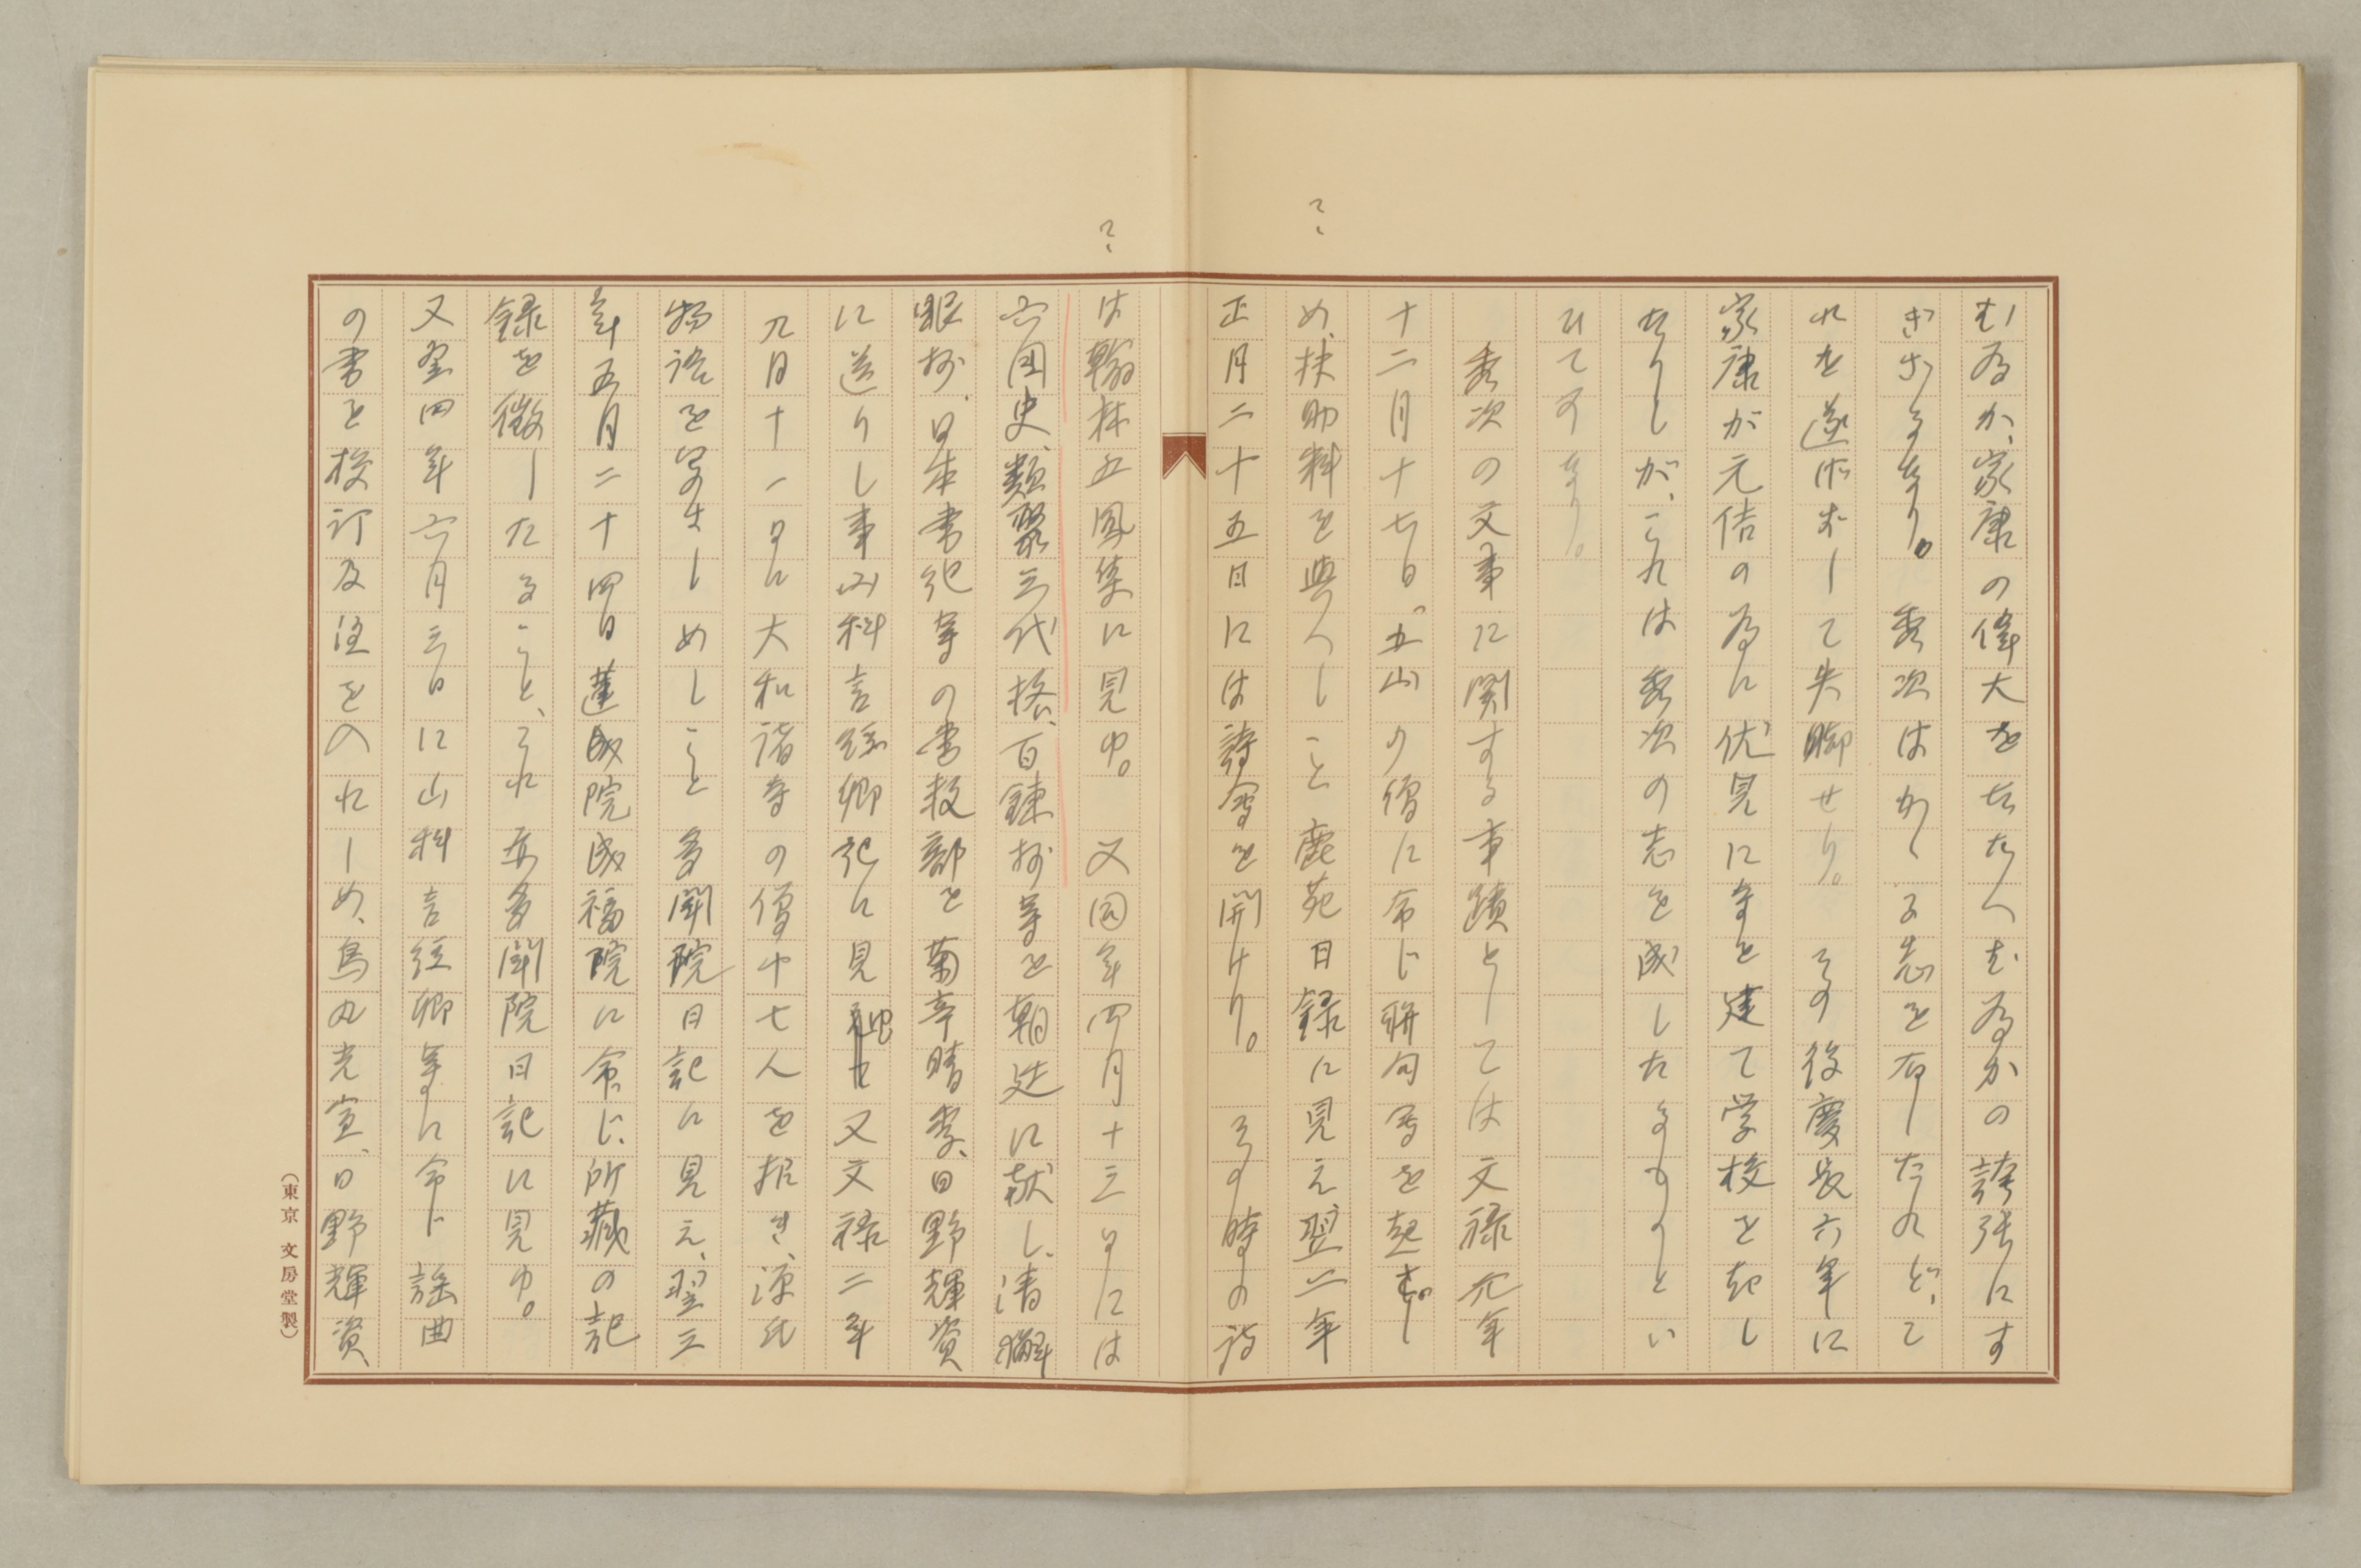 む為か、家康の偉大をたたへむ為かの誇張にす
ぎざるなり。秀次はかゝる志を有したれど、こ
れを遂げずして失脚せり。その後慶長六年に
家康が元佶の為に伏見に寺を建て学校を起し
たりしが、これは秀次の志を成したるものとい
ひて可なり。
秀次の文事に関する事蹟としては文禄元年
十二月十七日。五山の僧に命じ聯句会を起さし
め、扶助料を与へしこと鹿苑日録に見え、翌二年
正月二十五日には詩会を開けり。その時の詩
は翰林五鳳集に見ゆ。又同年四月十三日には
六国史、類聚三代格、百錬抄等を朝廷に献じ、清獬
眼抄、日本書紀等の書数部を菊亭晴季、日野輝資
に送りし事山科言経卿記に見ゆ 又文禄二年
九月十一日に大和諸寺の僧十七人を招き、源氏
物語を写さしめしこと多聞院日記に見え、翌三
年五月二十四日蓮成院成福院に命じ、所蔵の記
録を徴したること、これ亦多聞院日記に見ゆ。
又翌四年六月三日に山科言経卿等に命じ謡曲
の書を校訂及注を入れしめ、烏丸光宣、日野輝資
(東京 文房堂製)